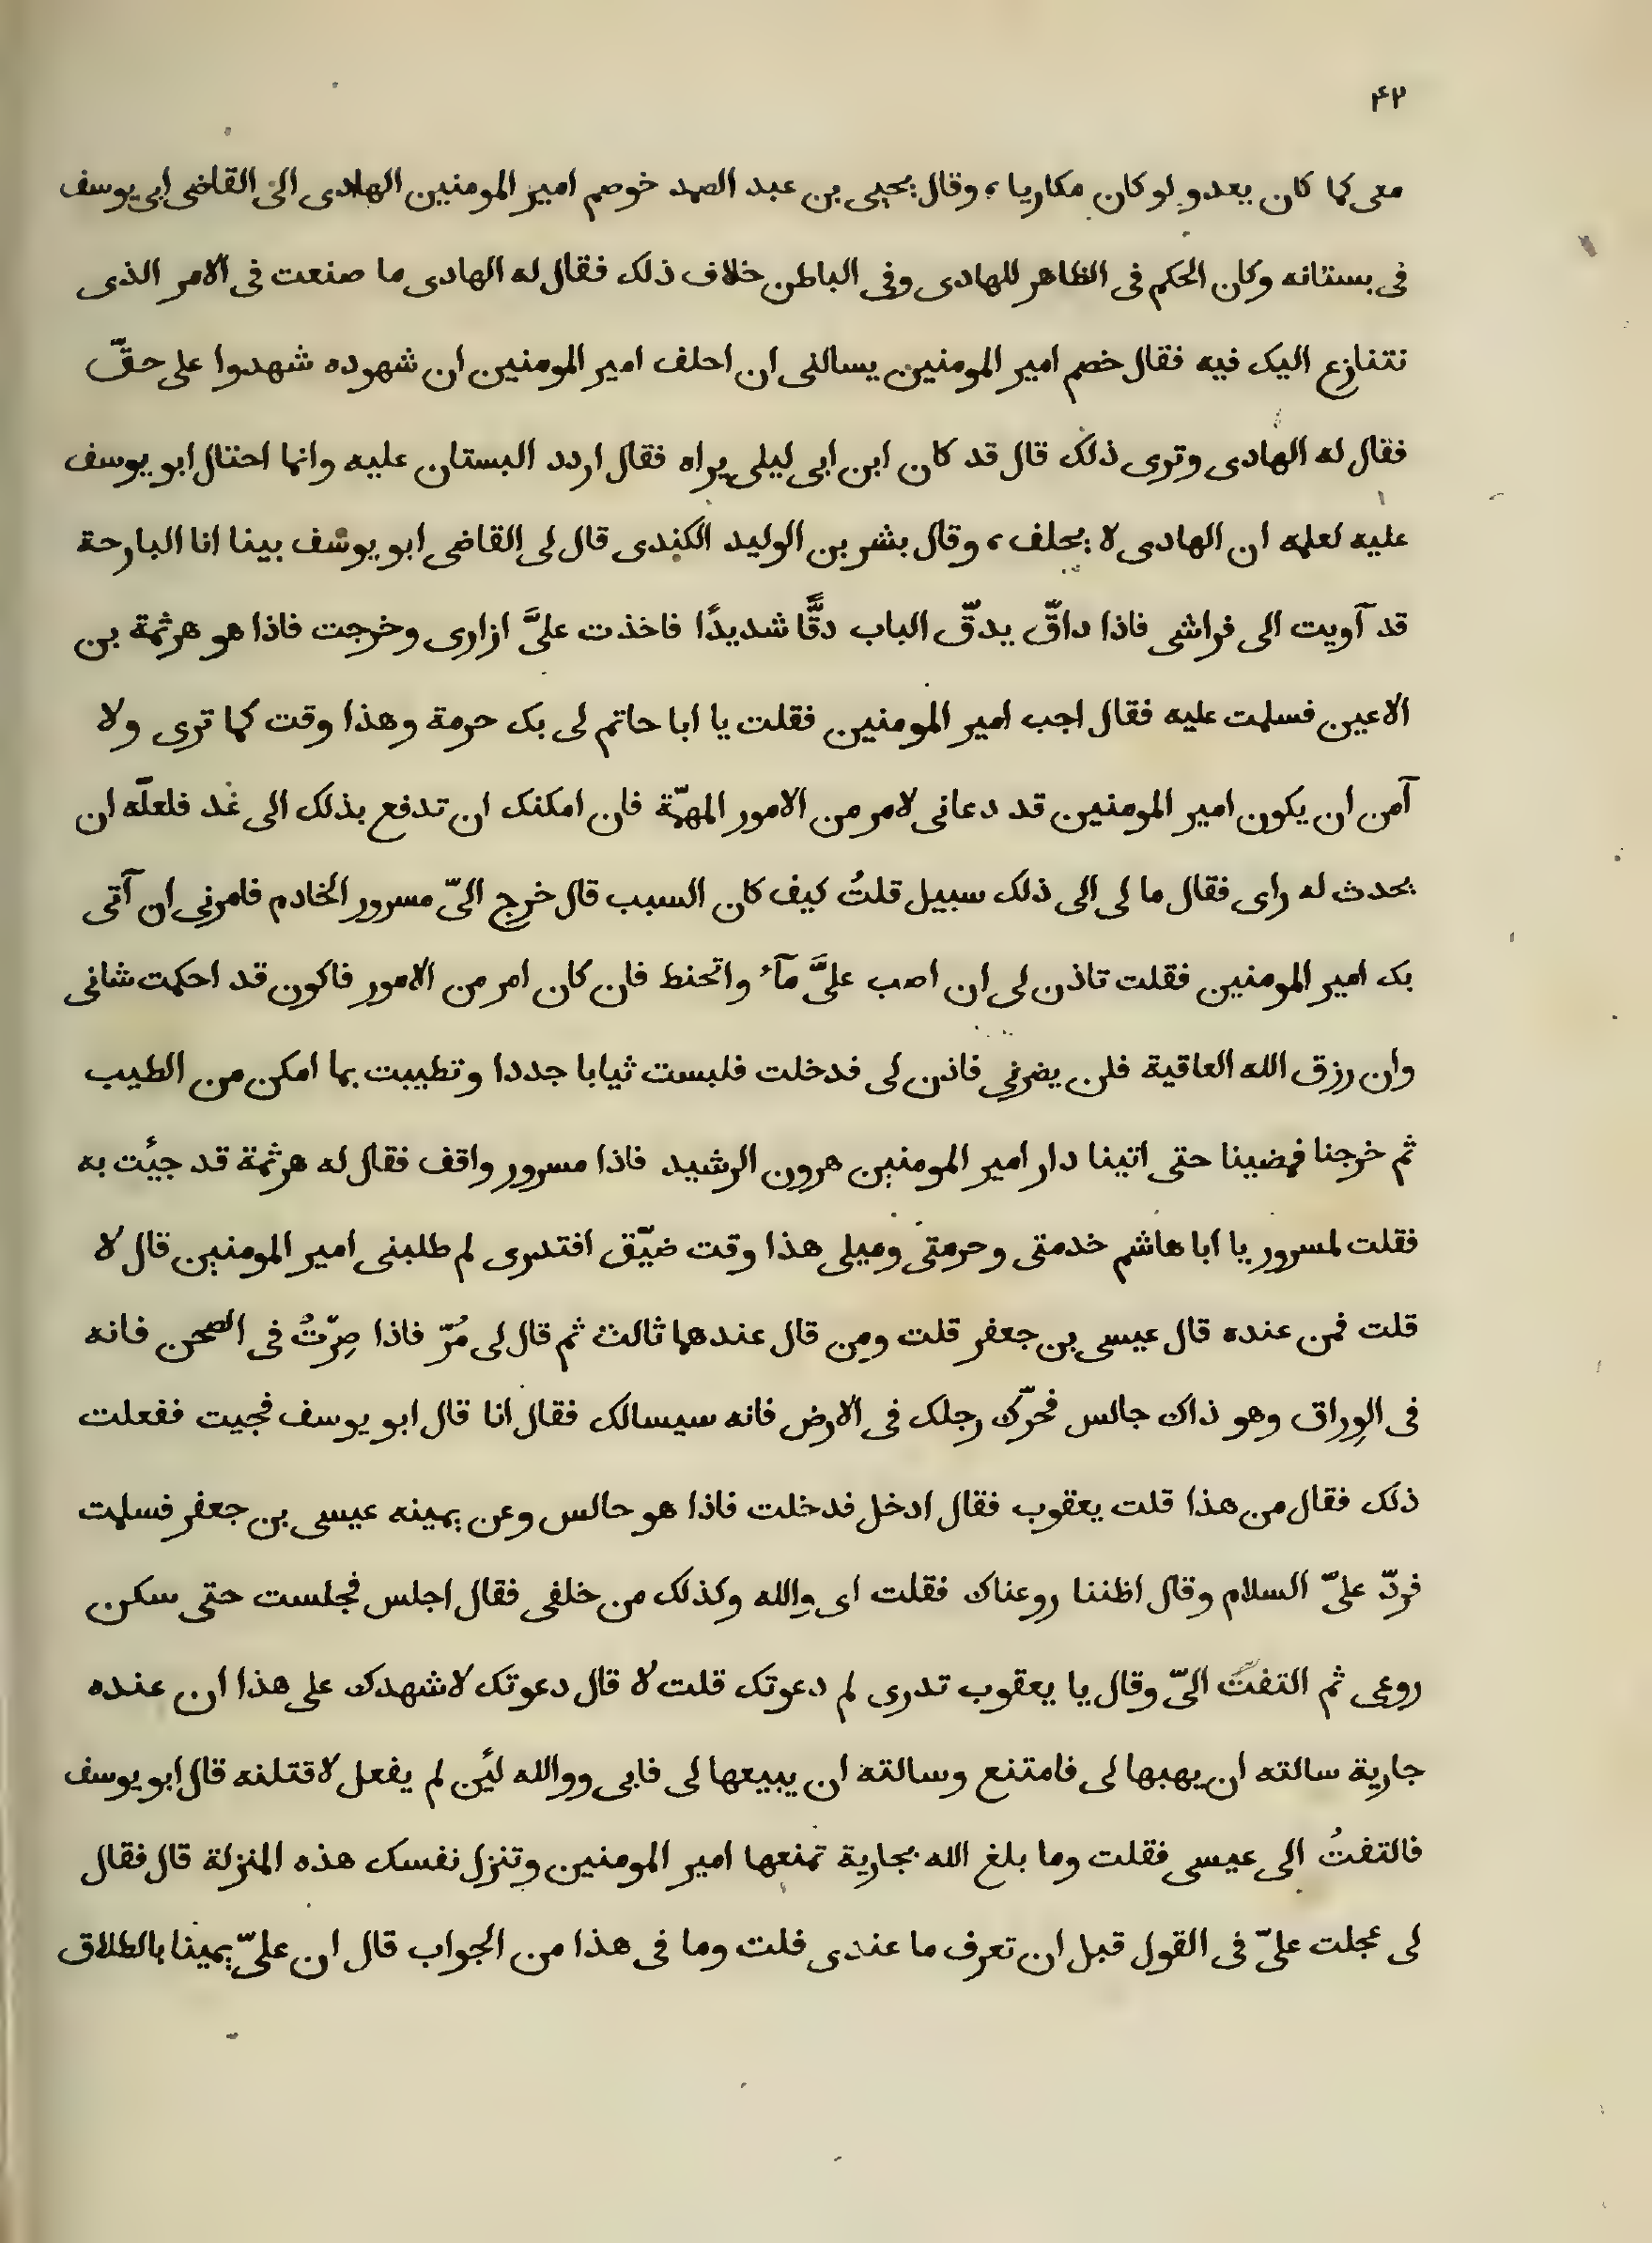 ۴۲
معى كما كان يعدو لو كان مكاريا، وقال يحيى بن عبد الصمد خوصم امير المومنين الهادى الى القاضى ابى يوسف
فى بستانه وكان الحكم فى الظاهر للهادى وفى الباطن خلاف ذلك فقال له الهادى ما صنعت فى الامر الذى
نتنازع اليك فيه فقال خصم امير المومنين يسالنى ان احلف امير المومنين ان شهوده شهدوا على حقّ
فقال له الهادى وترى ذلك قال قد كان ابن ابى ليلى يراه فقال اردد البستان عليه وانما احتال ابو يوسف
عليه لعلمه ان الهادى لا يحلف، وقال بشر بن الوليد الكندى قال لى القاضى ابو يوسف بينا انا البارحة
قد آويت الى فراشى فاذا داقّ يدقّ الباب دقًّا شديدًا فاخذت علىَّ ازارى وخرجت فاذا هو هرثمة بن
الاعين فسلمت عليه فقال اجب امير المومنين فقلت يا ابا حاتم لى بك حرمة وهذا وقت كما ترى ولا
آمن ان يكون امير المومنين قد دعانى لامر من الامور المهمّة فان امكنك ان تدفع بذلك الى غد فلعلّه ان
يحدث له راى فقال ما لى الى ذلك سبيل قلتُ كيف كان السبب قال خرج الىّ مسرور الخادم فامرنى ان آتى
بك امير المومنين فقلت تاذن لى ان اصب علىَّ مآء واتحنط فان كان امر من الامور فاكون قد احكمت شانى
وان رزق الله العاقية فلن يضرنى فاذن لى فدخلت فلبست ثيابا جددا وتطيبت بما امكن من الطيب
ثم خرجنا فمضينا حتى اتينا دار امير المومنين هرون الرشيد فاذا مسرور واقف فقال له هرثمة قد جئت به
فقلت لمسرور يا ابا هاشم خدمتى وحرمتى وميلى هذا وقت ضيّق افتدرى لم طلبنى امير المومنين قال لا
قلت فمن عنده قال عيسى بن جعفر قلت ومن قال عندهما ثالث ثم قال لى مُرّ فاذا صِرّتُ فى الصحن فانه
فى الوِراق وهو ذاك جالس فحرّك رجلك فى الارض فانه سيسالك فقال انا قال ابو يوسف فجيت ففعلت
ذلك فقال من هذا قلت يعقوب فقال ادخل فدخلت فاذا هو حالس وعن يمينه عيسى بن جعفر فسلمت
فردّ علىّ السلام وقال اظننا روعناك فقلت اى والله وكذلك من خلفى فقال اجلس فجلست حتى سكن
روعى ثم التفتّ الىّ وقال يا يعقوب تدرى لم دعوتك قلت لا قال دعوتك لاشهدك على هذا ان عنده
جارية سالته ان يهبها لى فامتنع وسالته ان يبيعها لى فابى ووالله لئن لم يفعل لاقتلنه قال ابو يوسف
فالتفتُ الى عيسى فقلت وما بلغ الله بجارية تمنعها امير المومنين وتنزل نفسك هذه المنزلة قال فقال
لى عجلت علىّ فى القول قبل ان تعرف ما عندى فلت وما فى هذا من الجواب قال ان علىّ يمينا بالطلاق